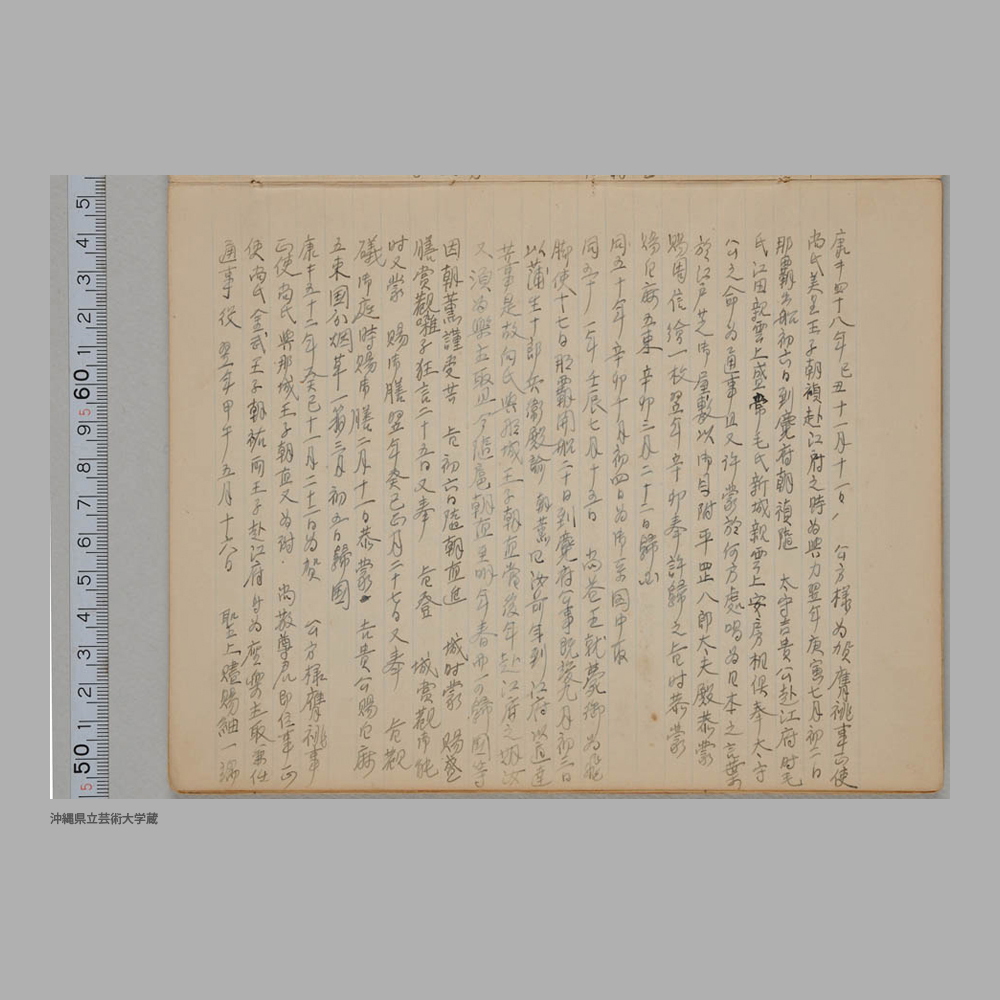 康熙四十八年己丑十一月十一日、公方様為賀膺祧事正使
尚氏美里王子朝禎赴江府之時為與力翌年庚寅七月初二日
那覇出船初六日到麑府朝禎隨 太守吉貴公赴江府時毛
氏江田親雲上盛 毛氏新城親雲上安房相俱奉大守
公之命為通事且又許蒙於何方處唱為日本之言葉
於江戸芝御屋敷以御目附平田正八郎太夫殿恭蒙
賜周信絵一枚翌年辛卯奉許歸之旨時恭蒙
賜白麻五束辛卯三月二十二日歸
同五十年辛卯十月初四日為御系圖中取
同五十一年壬辰七月十五日 尚益王就薨御為飛
脚使十七日那覇開船二十日到麑府公事既竣九月初三日
以蒲生十郎兵衛殿諭 朝薫曰汝前年到江府以達
其事是故尚氏與那城王子朝直當後年赴江府之期汝
又須為樂主取 今隨 朝直至明年春而可歸國等
因朝薫謹受其 旨初六日隨朝直進 城時蒙 賜盛
膳賞觀雅子狂言二十五日又奉 旨登 城賞觀御能
時又蒙 賜御膳翌年癸巳正月二十七日又奉 旨觀
儀御庭時賜御膳二月十一日恭蒙 吉貴公賜白麻
五束国分烟草一箱三月初五日歸國
康熙五十二年癸巳十一月二十二日為賀 公方様膺祧事
正使尚氏與那城王子朝直又為 尚敬尊君即位事正
使尚氏金武王子朝祐両王子赴江府時為座樂主取 任
通事役 翌年甲午五月十六日 聖上 賜紬一端